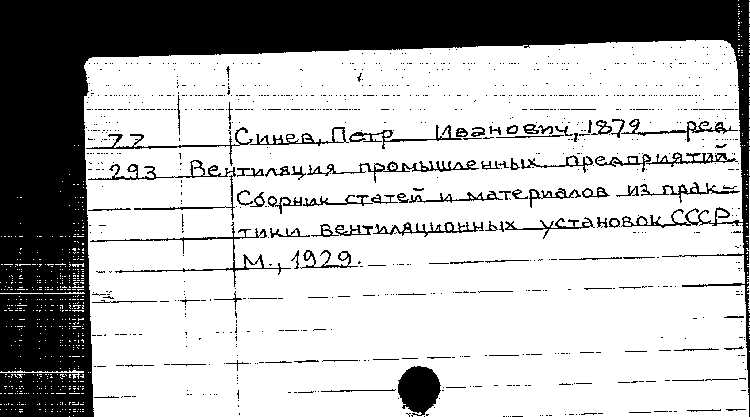 77 Синев, Петр Иванович, 1879 ред.
293 Вентиляция промышленных предприятий.
Сборник статей и материалов из прак=
тики вентиляционных установок СССР.
М., 1929.